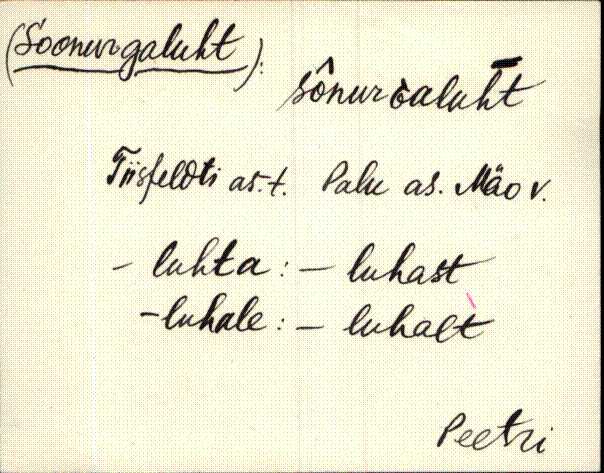 (Soonurgaluht):
sônurgalūht
Tiisfeldti as.t. Palu as. Mäo v.
- luhta : - luhast
- luhale : - luhalt
Peetri